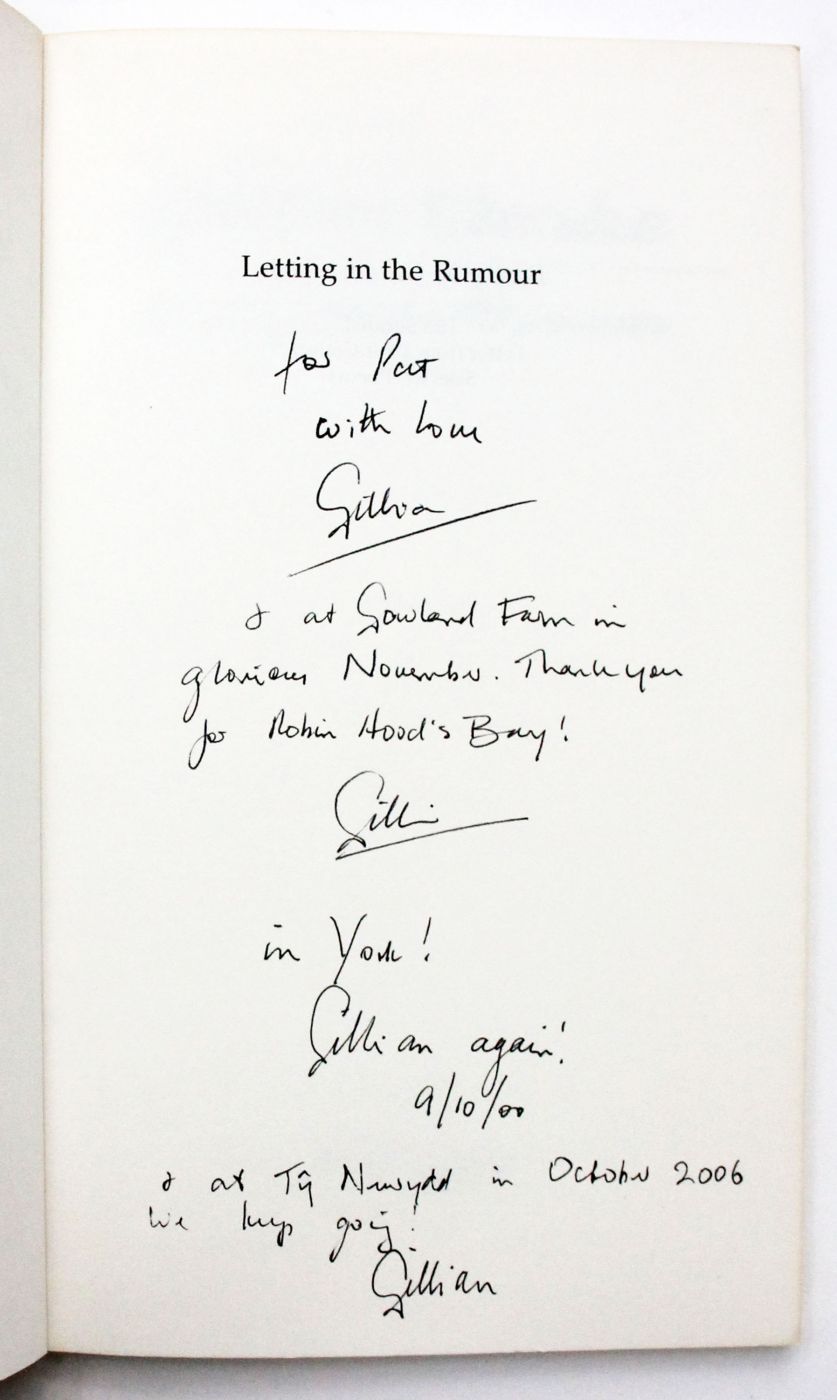 Letting in the Rumour
for Pat
with love
Gillian
& at Gowland Farm in
glorious November. Thank you
for Robin Hood's Bay!
Gillian
in York!
Gillian again!
9/10/00
& at Tŷ Newydd in October 2006
We keep going!
Gillian